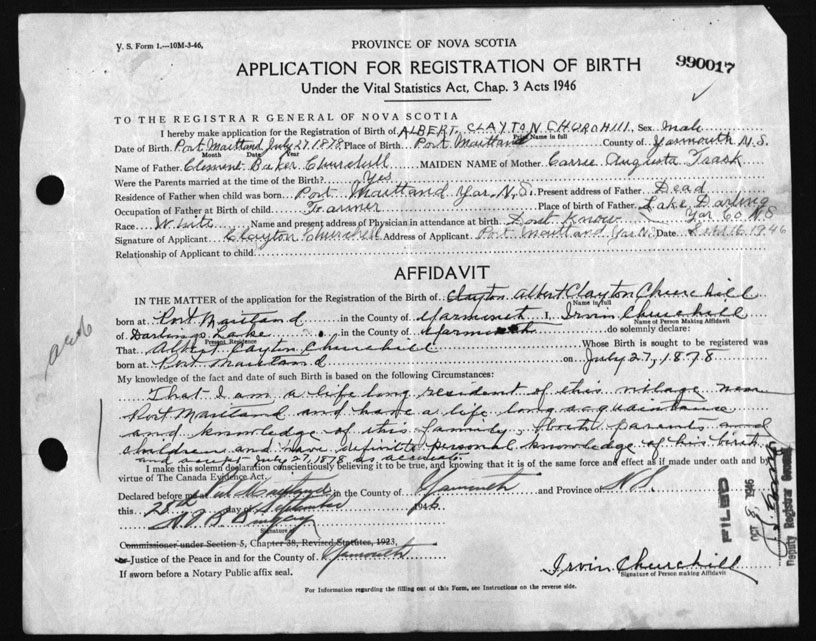 V. S. Form 1.—10M-3-46,
PROVINCE OF NOVA SCOTIA
990017
APPLICATION FOR REGISTRATION OF BIRTH
Under the Vital Statistics Act, Chap. 3 Acts 1946
TO THE REGISTRAR GENERAL OF NOVA SCOTIA
I hereby make application for the Registration of Birth of ALBERT CLAYTON CHURCHILL, Sex male
Print Name in full
Date of Birth Port Maitland July 27 1878 Place of Birth Port Maitland County of Yarmouth N.S.
Month Date Year
Name of Father Clement Baker Churchill MAIDEN NAME of Mother Carrie Augusta Trask
Were the Parents married at the time of the Birth? Yes
Residence of Father when child was born Port Maitland Yar. N.S. Present address of Father Dead
Occupation of Father at Birth of child Farmer Place of birth of Father Lake Darling
Race White Name and present address of Physician in attendance at birth Dont Know Yar Co. N.S
Signature of Applicant Clayton Churchill Address of Applicant Port Maitland Yar N. Date Sept 16, 1946
Relationship of Applicant to child
AFFIDAVIT
IN THE MATTER of the application for the Registration of Birth of Clayton Albert Clayton Churchill
Name in full
born at Port Maitland in the County of Yarmouth I, Irvin Churchill
Name of Person Making Affidavit
of Darlings Lake in the County of Yarmouth do solemnly declare:
Present Residence
That Albert Clayton Churchill Whose Birth is sought to be registered was
born at Port Maitland on July 27, 1878
My knowledge of the fact and date of such Birth is based on the following Circumstances:
That I am a life long resident of this village near
Port Maitland and have a life long acquaintance
and knowledge of this family, both parents and
children and have definite personal knowledge of his birth
and accept July 27, 1878 as accurate
I make this solemn declaration conscientiously believing it to be true, and knowing that it is of the same force and effect as if made under oath and by
virtue of The Canada Evidence Act.
Declared before me at Port Maitland in the County of Yarmouth and Province of N S.
this 28th day of September 1946
Signature of
Commissioner under Section 5, Chapter 38, Revised Statutes, 1923,
or Justice of the Peace in and for the County of Yarmouth
If sworn before a Notary Public affix seal.
Irvin Churchill
Signature of Person making Affidavit
For Information regarding the filling out of this Form, see Instructions on the reverse side.
FILED
OCT 8 1946
Deputy Registrar General